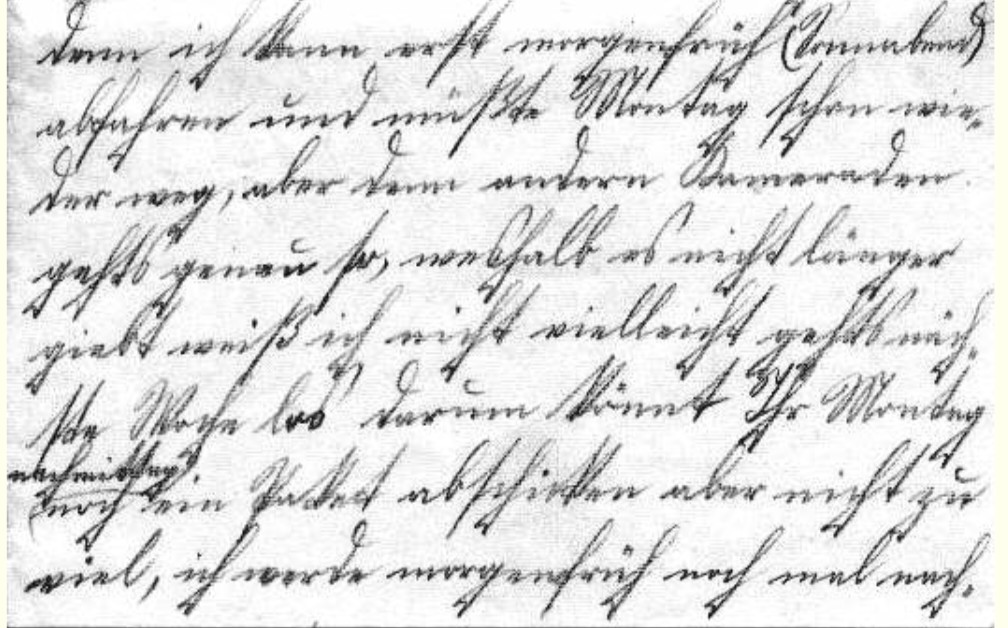 denn ich kann erst morgenfrüh (Sonnabend)
abfahren und müßte Montag schon wie-
der weg, aber denn andern Kameraden
gehts genau so, weshalb es nicht länger
giebt weiß ich nicht vielleicht gehts näch-
ste Woche los darum könnt Ihr Montag
nachmittag
noch ein Packet abschicken aber nicht zu
viel, ich werde morgenfrüh noch mal nach-